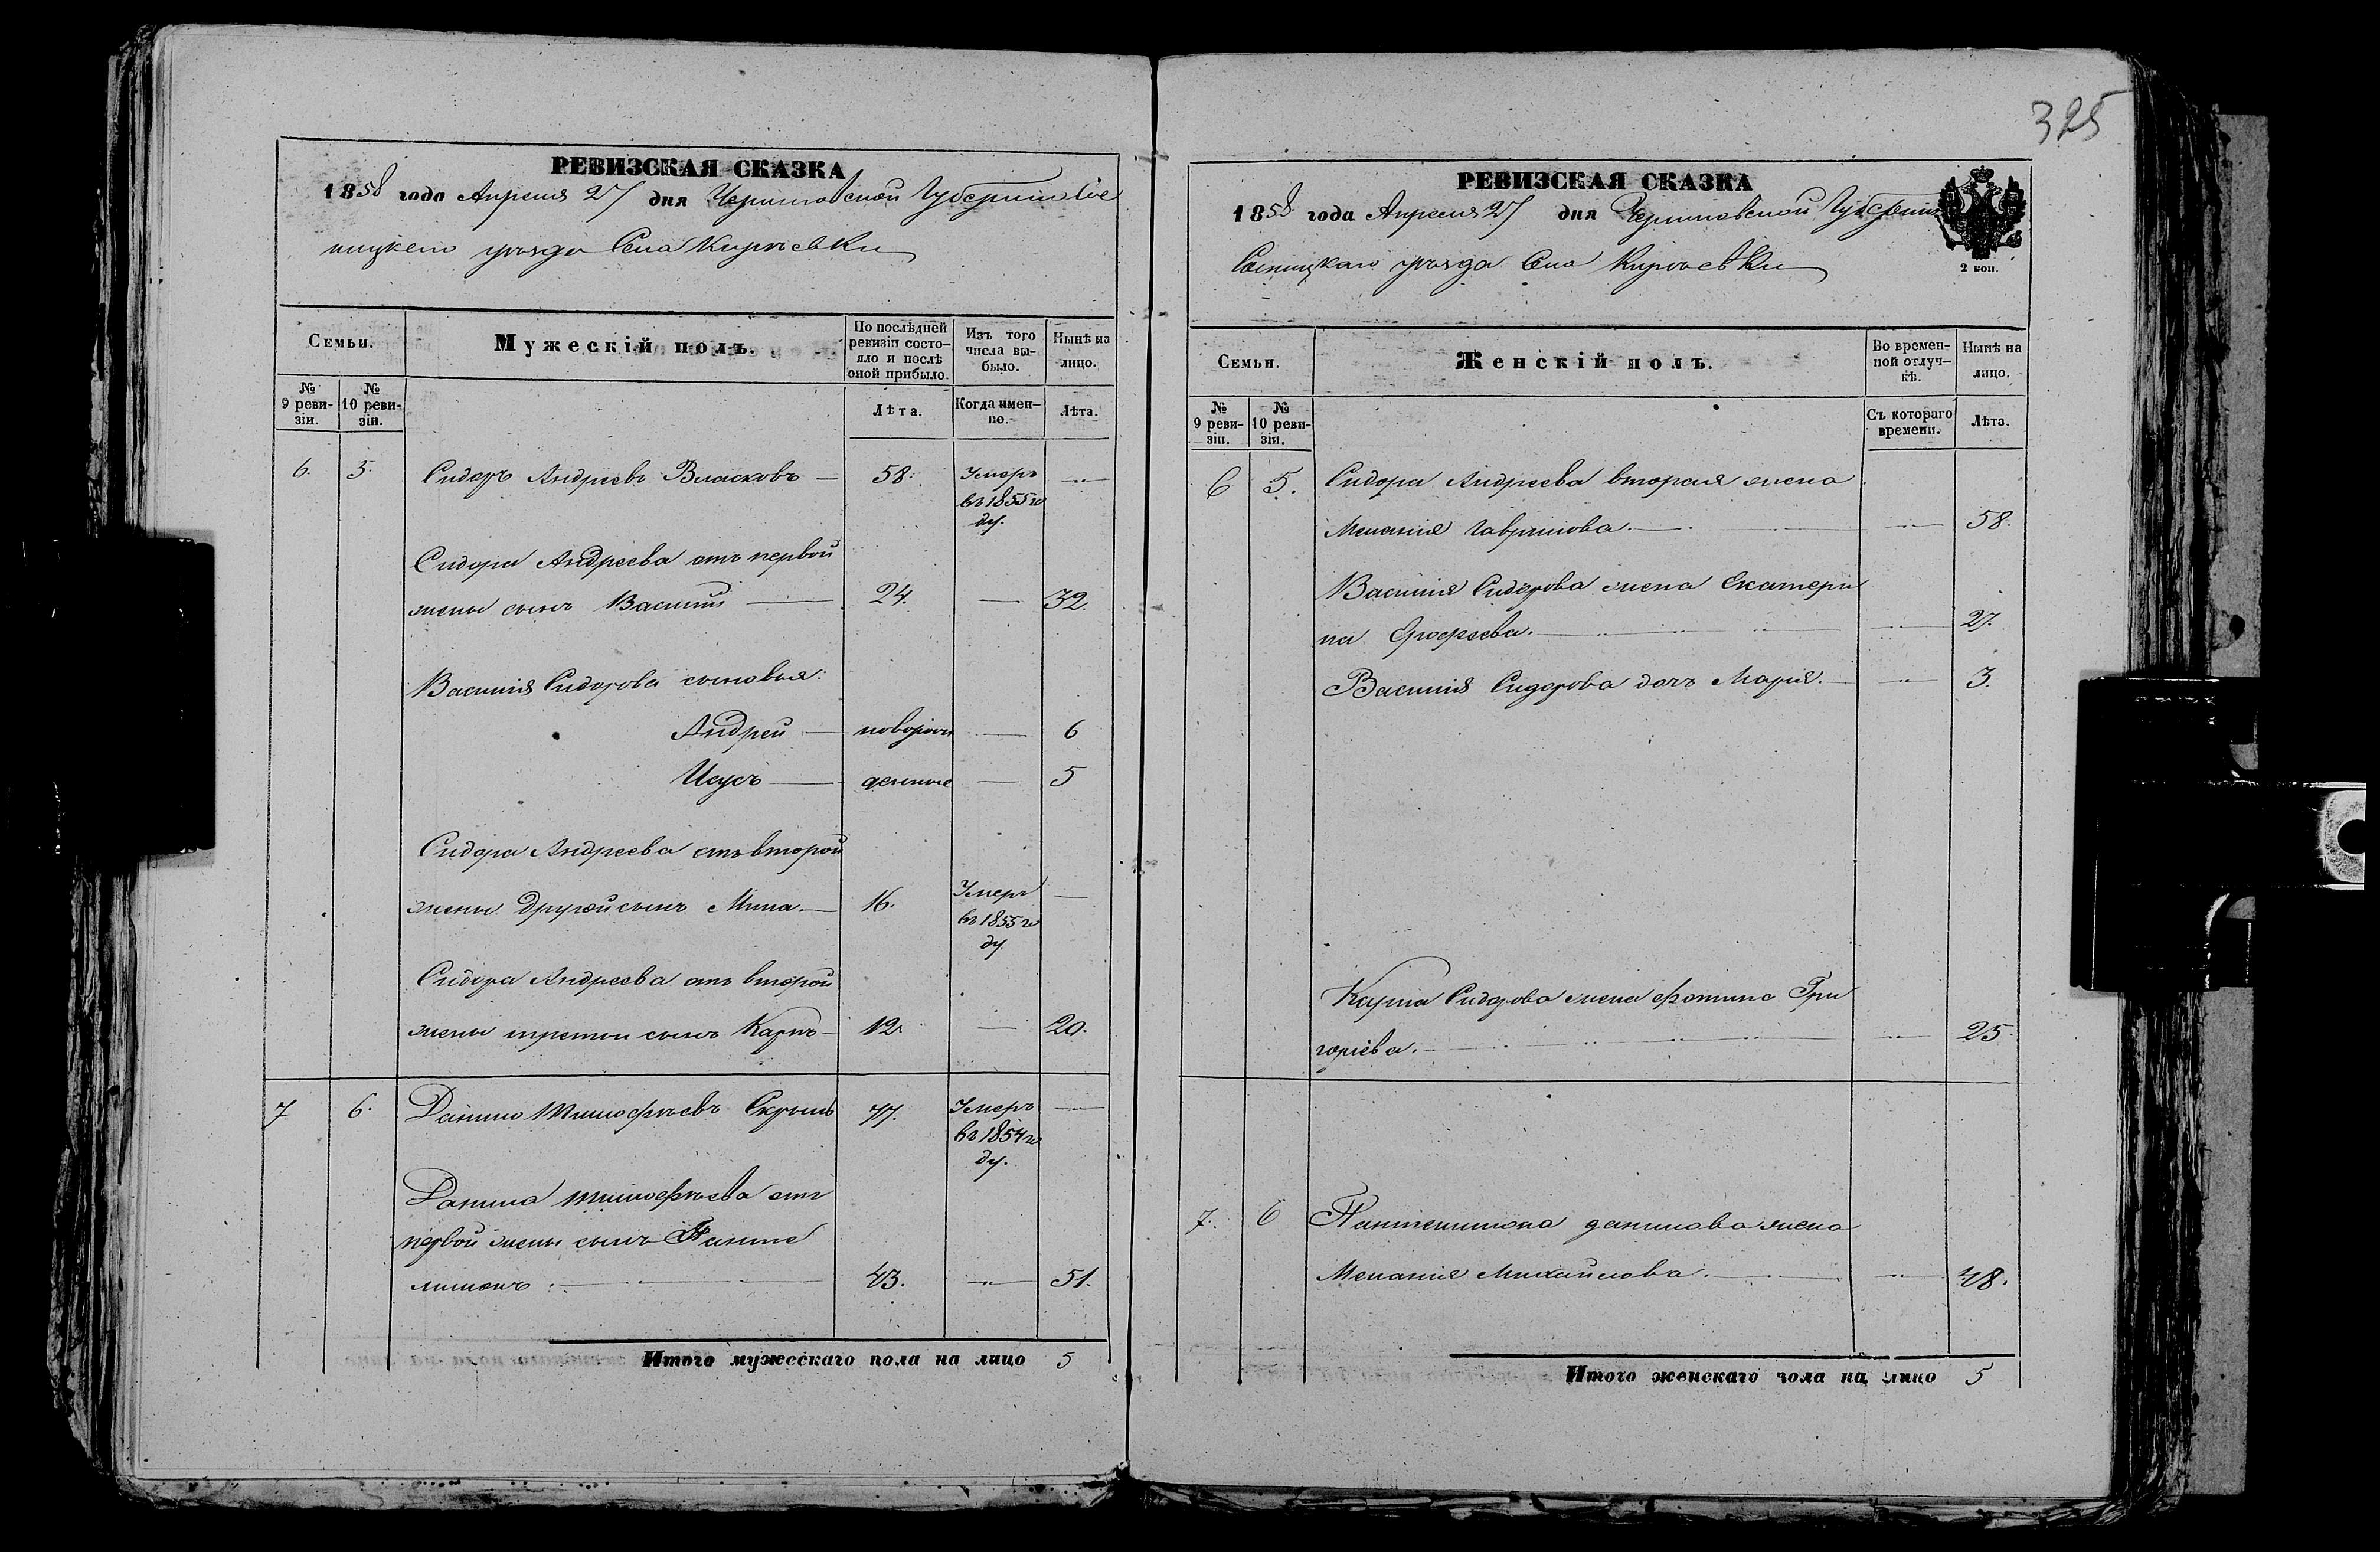 325
РЕВИЗСКАЯ СКАЗКА
1858 года Апреля 27 дня Черниговской Губерніи Сос
ницкого уѣзда Села Кирѣевки
Семьи.
Мужескій полъ.
По послѣдней ревизіи состо-
яло и послѣ оной прибыло.
Изъ того числа вы-
было.
Нынѣ на лицо.
№ 9 реви-
зіи.
№ 10 реви-
зіи.
Лѣта.
Когда имен-
но.
Лѣта.
6. 5. Сидоръ Андреевъ Власковъ — 58. Умеръ —
въ 1855 го
ду.
Сидора Андреева отъ первой
жены сынъ Василій — 24. — 32.
Василія Сидорова сыновья:
Андрей — новорож — 6
Исусъ — денные — 5
Сидора Андреева отъ второй
жены другой сынъ Мина — 16. Умеръ —
въ 1855 го
ду
Сидора Андреева отъ второй
жены третій сынъ Карпъ — 12. — 20.
7 6. Данило Тимофѣевъ 77. Умеръ —
въ 1854 го
ду.
Данила Тимофѣева отъ
первой жены сынъ Панте
лимонъ. — 43. — 51.
Итого мужескаго пола на лицо 5
РЕВИЗСКАЯ СКАЗКА
1858 года Апреля 27 дня Черниговской Губерніи
Сосницкаго уѣзда Села Кирѣевки
2 коп.
Семьи.
Женскій полъ.
Во времен-
ной отлуч-
кѣ.
Нынѣ на лицо.
№ 9 реви-
зіи.
№ 10 реви-
зіи.
Съ котораго времени.
Лѣта.
6 5. Сидора Андреева вторая жена
Меланія Гаврилова. — 58.
Василія Сидорова жена Екатери
на Ерофеева. — 27.
Василія Сидорова дочь Марія. — 3.
Карпа Сидорова жена Фотина Гри
горіева. — 25.
7. 6 Пантелимона Данилова жена
Меланія Михайлова. — 48.
Итого женскаго пола на лицо 5